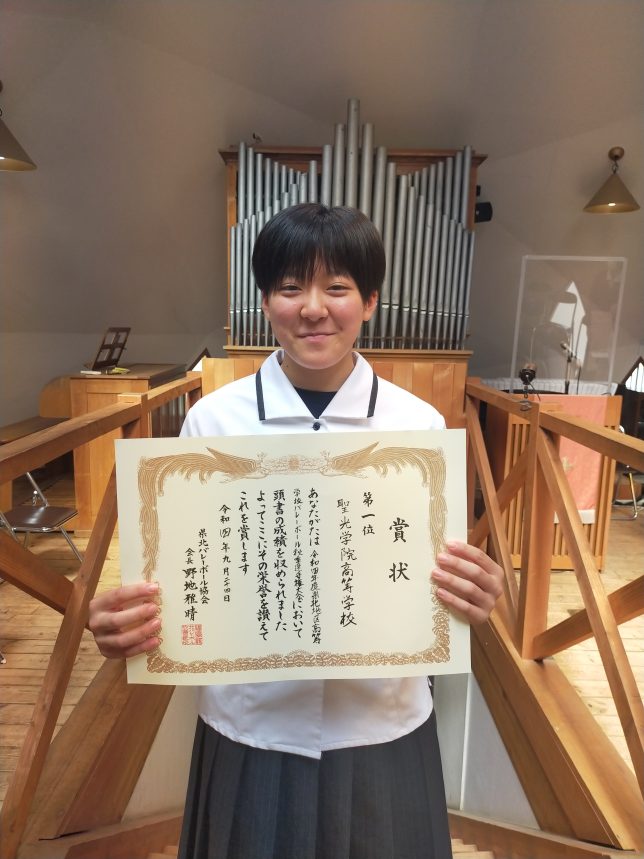 賞状
第一位
聖光学院高等学校
あなたがたは令和四年度県北地区高等
学校バレーボール秋季選手権大会において
頭書の成績を収められました
よってここにその栄誉を讃えて
これを賞します
令和四年九月二四日
県北バレーボール協会
会長 野地雅晴